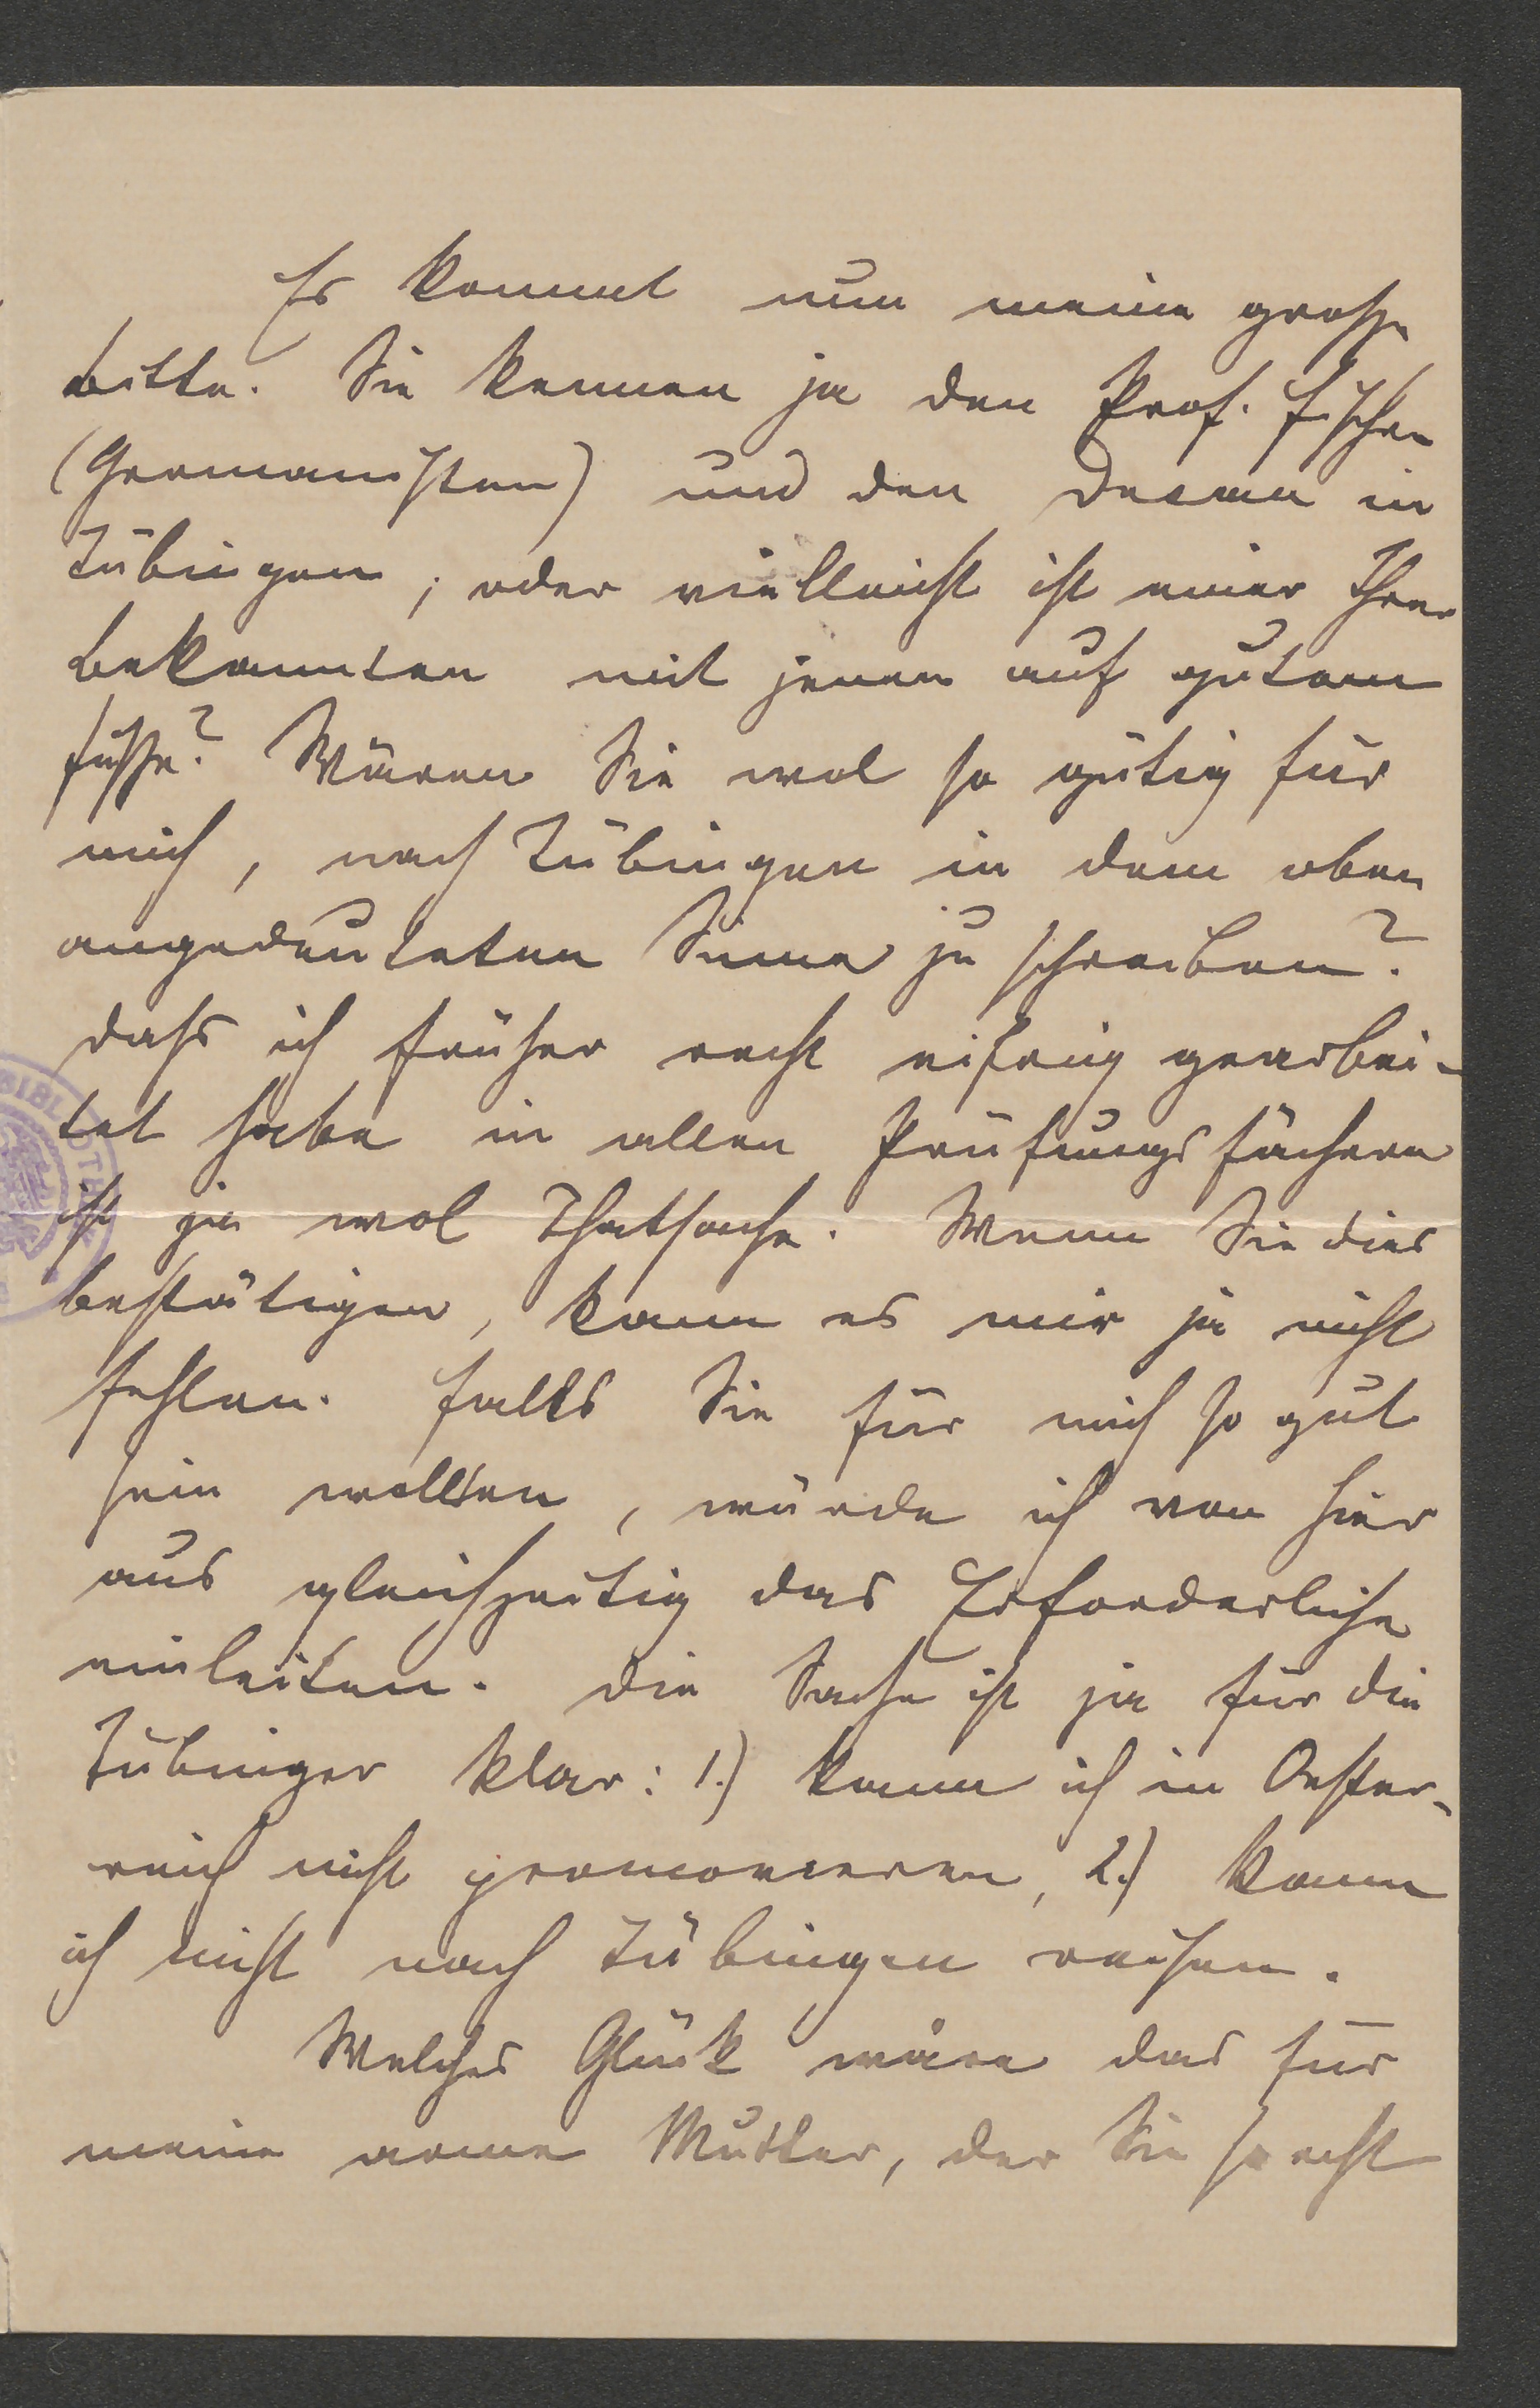 Es kommt nun meine große
Bitte. Sie kennen ja den Prof. Fischer
(Germanisten) und den Decan in
Tübingen; oder vielleicht ist einer Ihrer
Bekannten mit jenen auf gutem
Fuße? Wären Sie wol so gütig für
mich, nach Tübingen in dem oben
angedeuteten Sinne zu schreiben?
Daß ich früher recht eifrig gearbei-
tet habe in allen Prüfungsfächern
ist ja wol Thatsache. Wenn Sie dies
bestätigen, kann es mir ja nicht
fehlen. Falls Sie für mich so gut
sein wollten, würde ich von hier
aus gleichzeitig das Erforderliche
einleiten. Die Sache ist ja für die
Tübinger klar: 1.) kann ich in Oester-
reich nicht promovieren, 2.) kann
ich nicht nach Tübingen reisen.
Welches Glück wäre das für
meine arme Mutter, der Sie so echt
BIBLIOTHEK